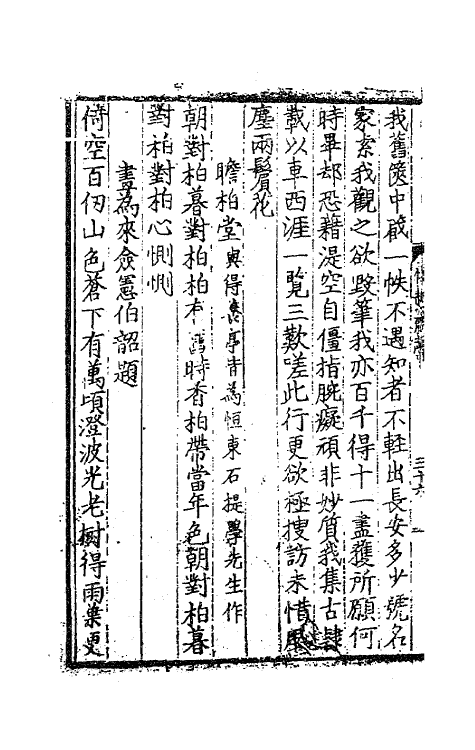 我舊篋中藏一帙不遇知者不輕出長安多少號名
家索我觀之欲毀筆我亦百千得十一盡獲所願何
時畢却恐藉湜空自僵指腕癡頑非妙質我集古隸
載以車西涯一覧三歎嗟此行更欲極搜訪未惜風
塵兩鬢花
瞻柏堂與得㑺亭昔為恒東石提學先生作
朝對柏暮對柏柏有舊時香柏帶當年色朝對柏暮
對柏對柏心惻惻
畫為來僉憲伯韶題
倚空百仞山色蒼下有萬頃澄波光老樹得雨葉更
三十六